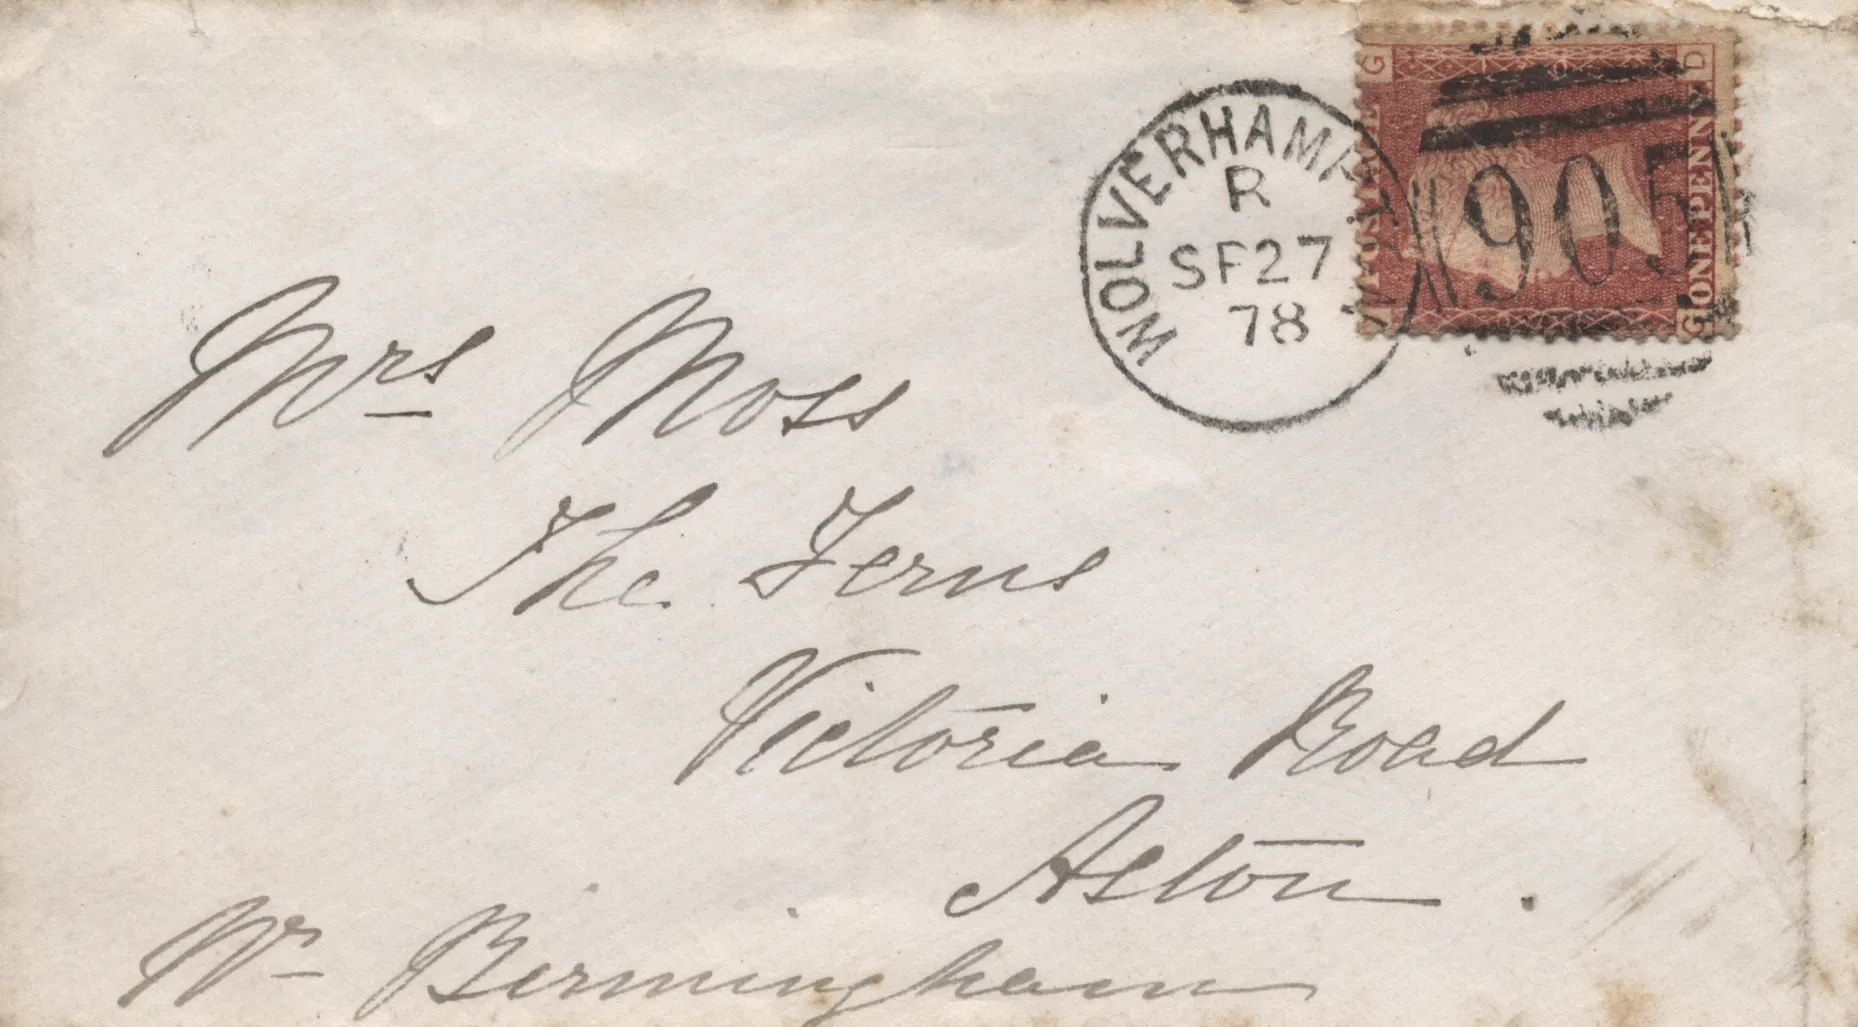 WOLVERHAMPTON
R
SP27
78
905
G D
POSTAGE
ONE PENNY
G
Mrs Moss
The Ferns
Victoria Road
Aston.
Nr Birmingham